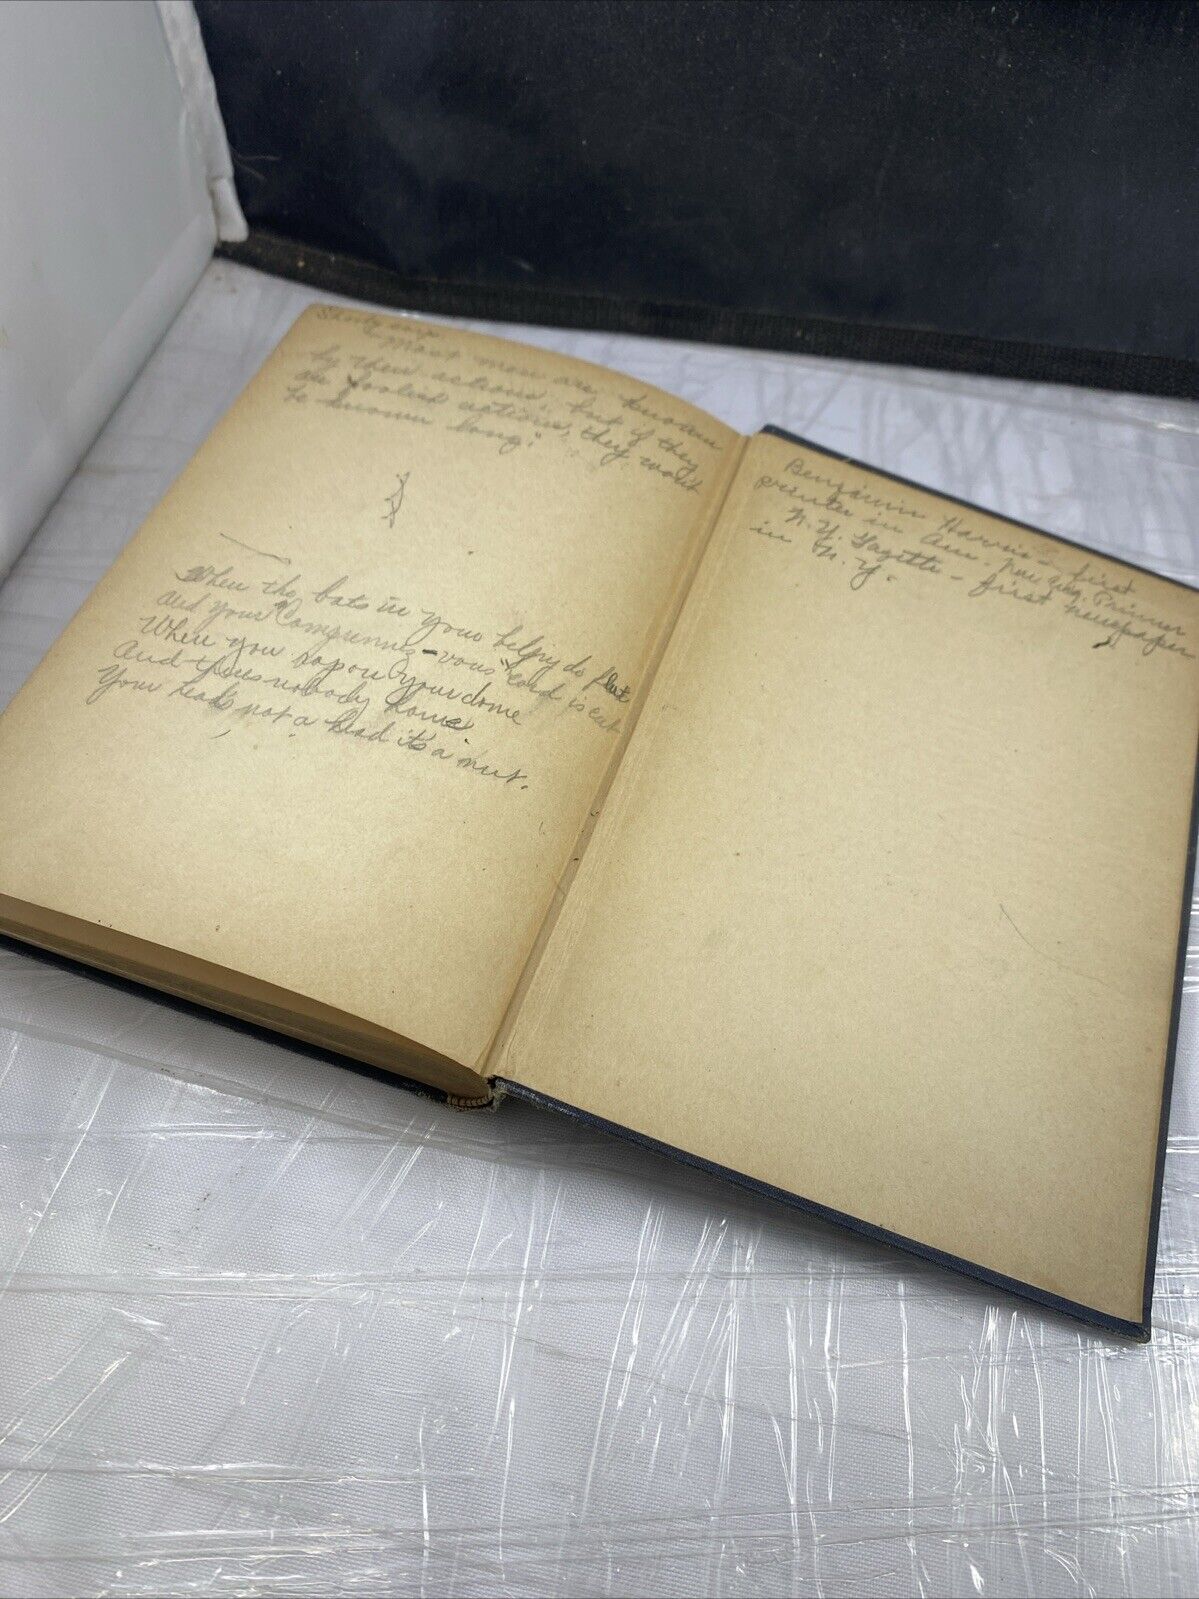 Most men are known
by their actions, but if they
are foolish actions, they wont
be known long."
When the bats in your belfry do flut
And your "Comprennez-vous" cord is cut
When you vapor your dome
And theres nobody home
Your heads not a head its a nut.
Benjamin Harris - first
printer in Am. New Eng. Primer
N.Y. Gazette - first newspaper
in N.Y.